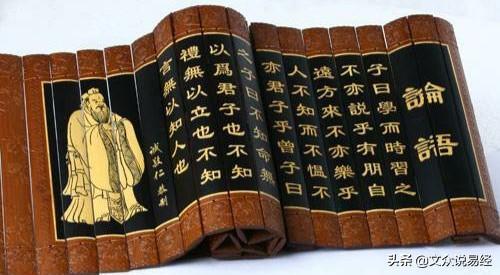 論語
子曰學而時習之
不亦說乎有朋自
遠方來不亦樂乎
人不知而不慍不
亦君子乎曾子曰
之子曰不知命無
以爲君子也不知
禮無以立也不知
言無以知人也
头条 @文众说易经